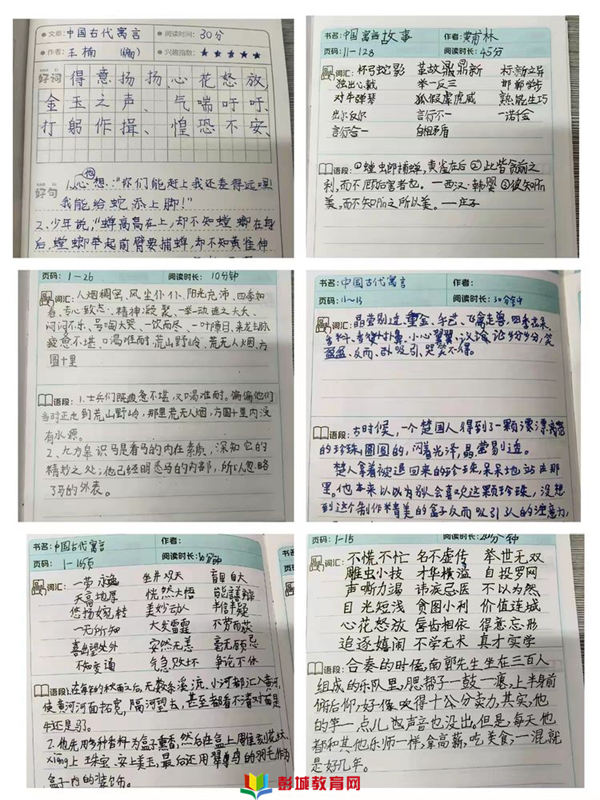 文章:中国古代寓言 阅读时长:30分
作者:王楠(编) 兴趣指数:★★★★★
好词 得意扬扬、心花怒放、
金玉之声、气喘吁吁、
打躬作揖、惶恐不安、
好句 1.心想:“你们能赶上我还差得远哩
我能给蛇添上脚!”
2.少年说,“蝉高高在上,却不知螳螂在身
后,螳螂举起前臂要捕蝉,却不知黄雀伸
书名:中国寓言故事 作者:黄甫林
页码:11-128 阅读时长:45分
词汇:杯弓蛇影 革故鼎新 标新立异
独出心裁 举一反三 邯郸学步
对牛弹琴 狐假虎威 熟能生巧
出尔反尔 言行不一 一诺千金
言行合一 自相矛盾
语段:①螳螂捕蝉,黄雀在后 ②此皆贪前之
利,而不顾后害者也。—西汉·韩婴 ③彼知所
美,而不知所之所以美。—庄子
页码:1-26 阅读时长:10分钟
词汇:人烟稠密、风尘仆仆、阳光充沛、四季如
春、专心致志、精神
闷闷不乐、号啕大哭、一饮而尽、一叶障目、来龙去脉
疲惫不堪、口渴难耐、荒山野岭、荒无人烟、方
圆十里
语段:1.士兵们既疲惫不堪,又口渴难耐。偏偏他们
当时正走到荒山野岭,那里荒无人烟,方圆十里内没
有水源。
2.九方皋识马是看马的内在素质,深知它的
精妙之处;他已经明悉马的内部,所以忽略
了马的外表。
书名:中国古代寓言 作者:
页码:11~15 阅读时长:30分钟
词汇:晶莹剔透、飞禽走兽、四季如春、
小心翼翼、议论纷纷、笑
盈盈、反而、吸引、哭笑不得。
语段:古时候,一个楚国人得到了一颗漂漂亮亮
的珍珠,圆圆的,闪着光泽,晶莹剔透。
楚人拿着被退回来的珍珠,呆呆地站在那
里。他本来以为别人会喜欢这颗珍珠,没想
到这个制作精美的盒子反而吸引人的注意力,
书名:中国古代寓言 作者:
页码:1-16页 阅读时长:30分钟
词汇:坐井观天 盲目自大
天高地厚 恍然大悟 能言善辩
悠扬婉转 美妙动人 半信半疑
一无所知 大发雷霆 不劳而获
喜出望外 安然无恙 毫无顾忌
不知变通 气急败坏 争论不休
语段:在每年的秋雨之后,无数条溪流、小河都汇入黄河,
使黄河河面拓宽,隔河望去,甚至都看不清对面是
牛还是马。
2.他先用多种香料为盒子熏香,然后在盒上周围刻花纹、
xiāng上珠宝、安上美玉,最后还用翠鸟的羽毛作为
盒子内的装饰。
页码:1-15 阅读时长:20分钟
词汇:不慌不忙 名不虚传 举世无双
雕虫小技 才华横溢 自投罗网
声嘶力竭 讳疾忌医 不以为然
目光短浅 贪图小利 价值连城
心花怒放 唇齿相依 得意忘形
追逐嬉闹 不学无术 真才实学
语段:合奏的时候,南郭先生坐在三百人
组成的乐队里,腮帮子一鼓一瘪,上半身前
俯后仰,好像吹得十分卖力,其实,他
的竽一点儿也声音也没出,但是,每天他
都和其他乐师一样,拿高薪,吃美食,一混就
是好几年。
彭城教育网